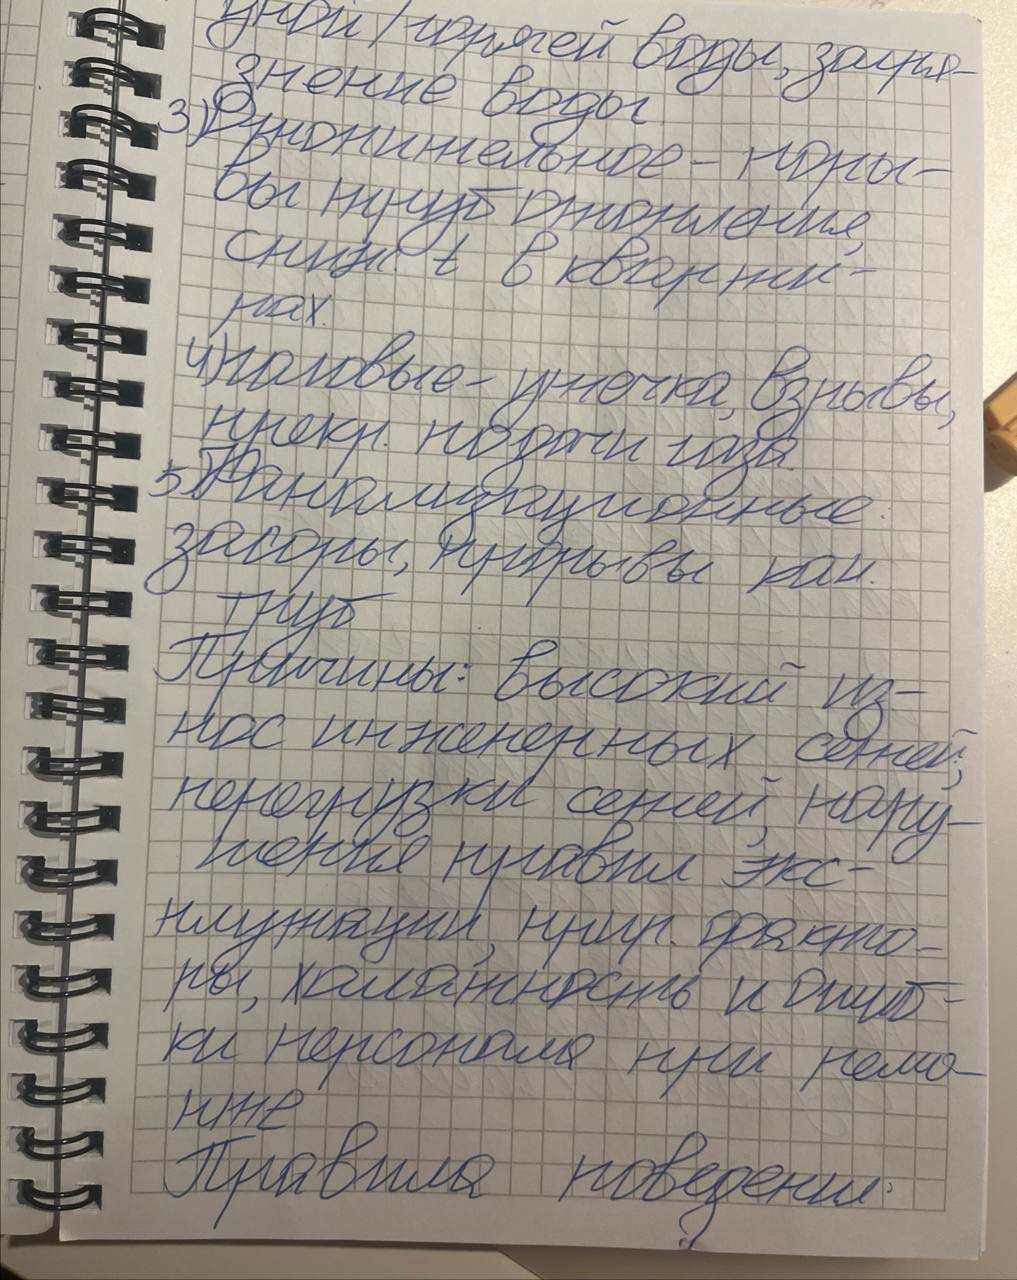 дной/горячей воды, загря-
знение воды.
3) Отопительное - поры-
вы труб отопления,
сниж. t в кварти-
рах.
4) газовые - утечка, взрывы,
прекр. подачи газа.
5) Канализационные.
засоры, прорывы кан.
труб
Причины: высокий из-
нос инженерных сетей,
перегрузки сетей, нару-
шения правил экс-
плуатации, прир. факто-
ры, халатность и ошиб-
ки персонала при ремо-
нте
Правила поведения: